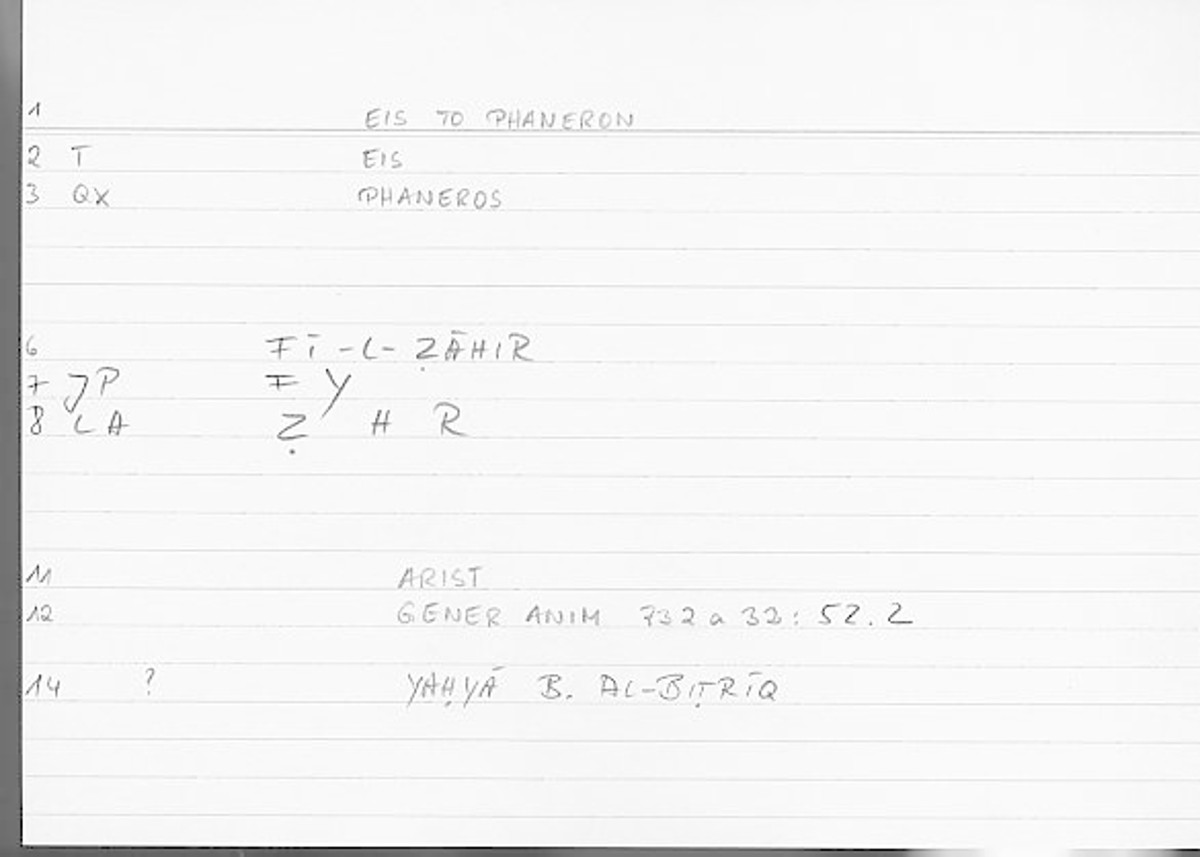 1 EIS TO PHANERON
2 T EIS
3 QX PHANEROS
6 FĪ-L-ẒĀHIR
7 JP F Y
8 LA Ẓ H R
11 ARIST
12 GENER ANIM 732 a 32: 52.2
14 ? YAḤYĀ B. AL-BIṬRĪQ